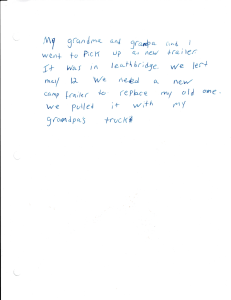 My grandma and grampa and I
went to Pick up a new trailer
It was in leathbridge we left
may 12 We need a new
camp trailer to replace my old one.
we pulled it with my
grandpas truck